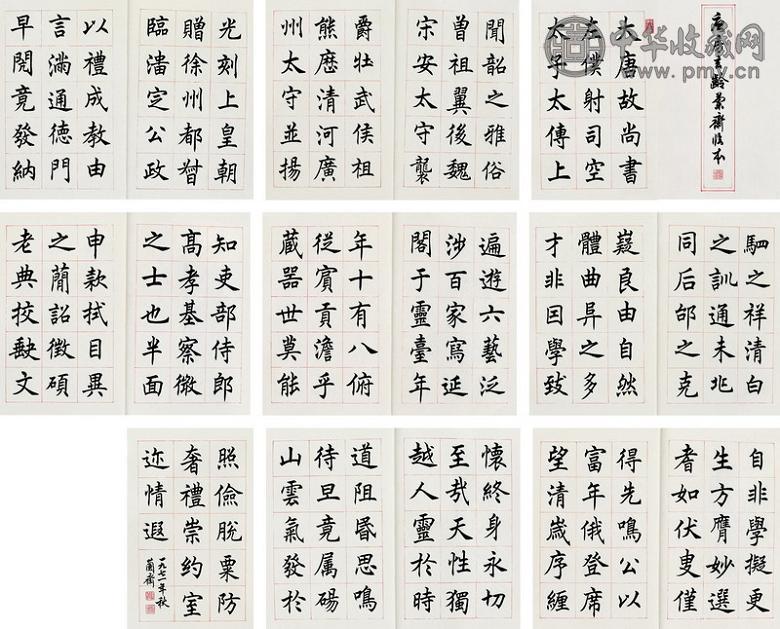 玄齡
蘭齋臨本
大唐故尚書
左僕射司空
太子太傅上
聞韶之雅俗
曾祖翼後魏
宋安太守襲
爵壮武侯祖
熊歷清河廣
州太守並揚
光刻上皇朝
贈徐州都督
臨淄定公政
以禮成教由
言滿通德門
早閲竟發納
駟之祥清白
之訓通未兆
同后郃之克
嶷良由自然
體曲異之多
才非因學致
遍遊六藝泛
涉百家寫延
閣于靈臺年
年十有八俯
從賓貢澹乎
蔵器世莫能
知吏部侍郎
髙孝基察微
之士也半面
申款拭目異
之蘭詔徵碩
老典挍缺文
自非學擬更
生方膺妙選
耆如伏叟僅
得先鳴公以
富年俄登席
望清歲序纏
懷終身永切
至哉天性獨
越人靈於時
道阻昬思鳴
待旦竟属碭
山雲氣發於
照儉脫粟防
奢禮崇約室
迩情遐
一九七一年秋
蘭齋
中华收藏网
www.pmy.cn